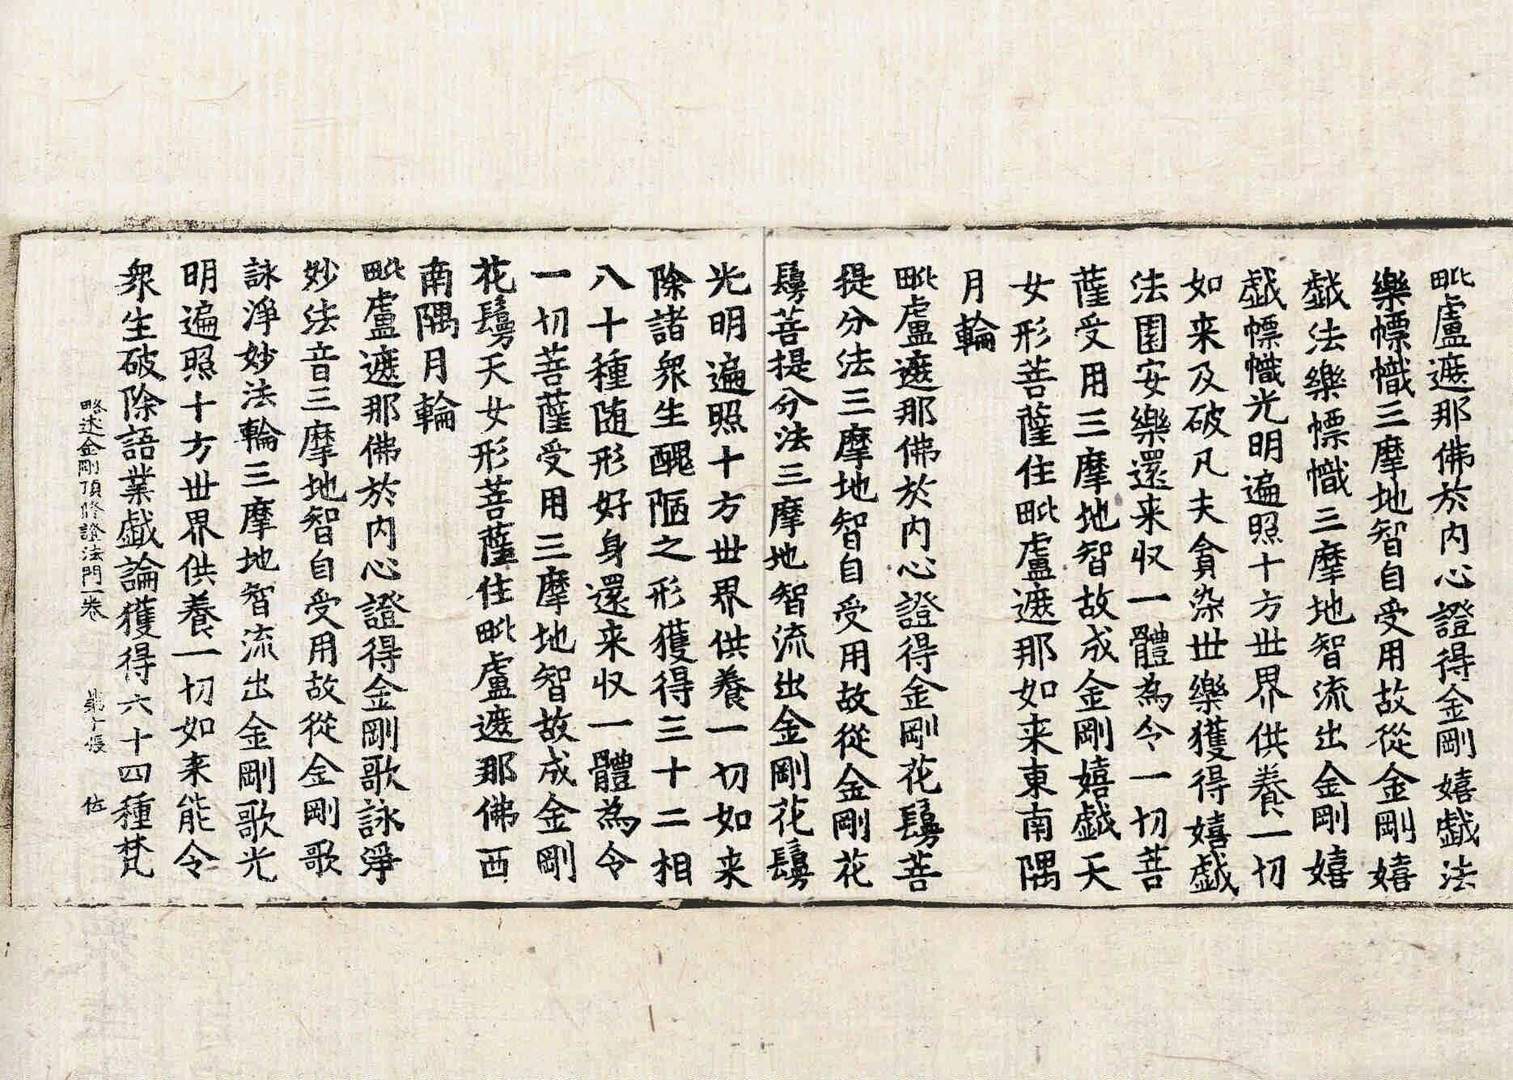 毗盧遮那佛於内心證得金剛嬉戯法
樂幖幟三摩地智自受用故從金剛嬉
戯法樂幖幟三摩地智流出金剛嬉
戯幖幟光明遍照十方丗界供養一切
如来及破凡夫貪染丗樂獲得嬉戯
法圎安樂還来収一體為令一切菩
薩受用三摩地智故成金剛嬉戯天
女形菩薩住毗盧遮那如来東南隅
月輪
毗盧遮那佛於内心證得金剛花鬘菩
提分法三摩地智自受用故從金剛花
鬘菩提分法三摩地智流出金剛花鬘
光明遍照十方丗界供養一切如来
除諸衆生醜陋之形獲得三十二相
八十種随形好身還来収一體為令
一切菩薩受用三摩地智故成金剛
花鬘天女形菩薩住毗盧遮那佛西
南隅月輪
毗盧遮那佛於内心證得金剛歌詠淨
妙法音三摩地智自受用故從金剛歌
詠淨妙法輪三摩地智流出金剛歌光
明遍照十方丗界供養一切如来能令
衆生破除語業戯論獲得六十四種梵
略述金剛頂修證法門一卷 第十張 佐